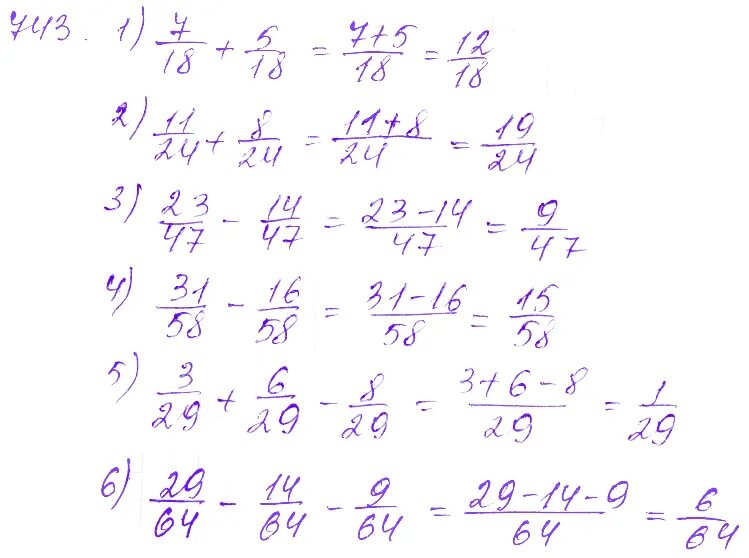 743. 1) 7/18 + 5/18 = 7+5/18 = 12/18
2) 11/24 + 8/24 = 11+8/24 = 19/24
3) 23/47 - 14/47 = 23-14/47 = 9/47
4) 31/58 - 16/58 = 31-16/58 = 15/58
5) 3/29 + 6/29 - 8/29 = 3+6-8/29 = 1/29
6) 29/64 - 14/64 - 9/64 = 29-14-9/64 = 6/64